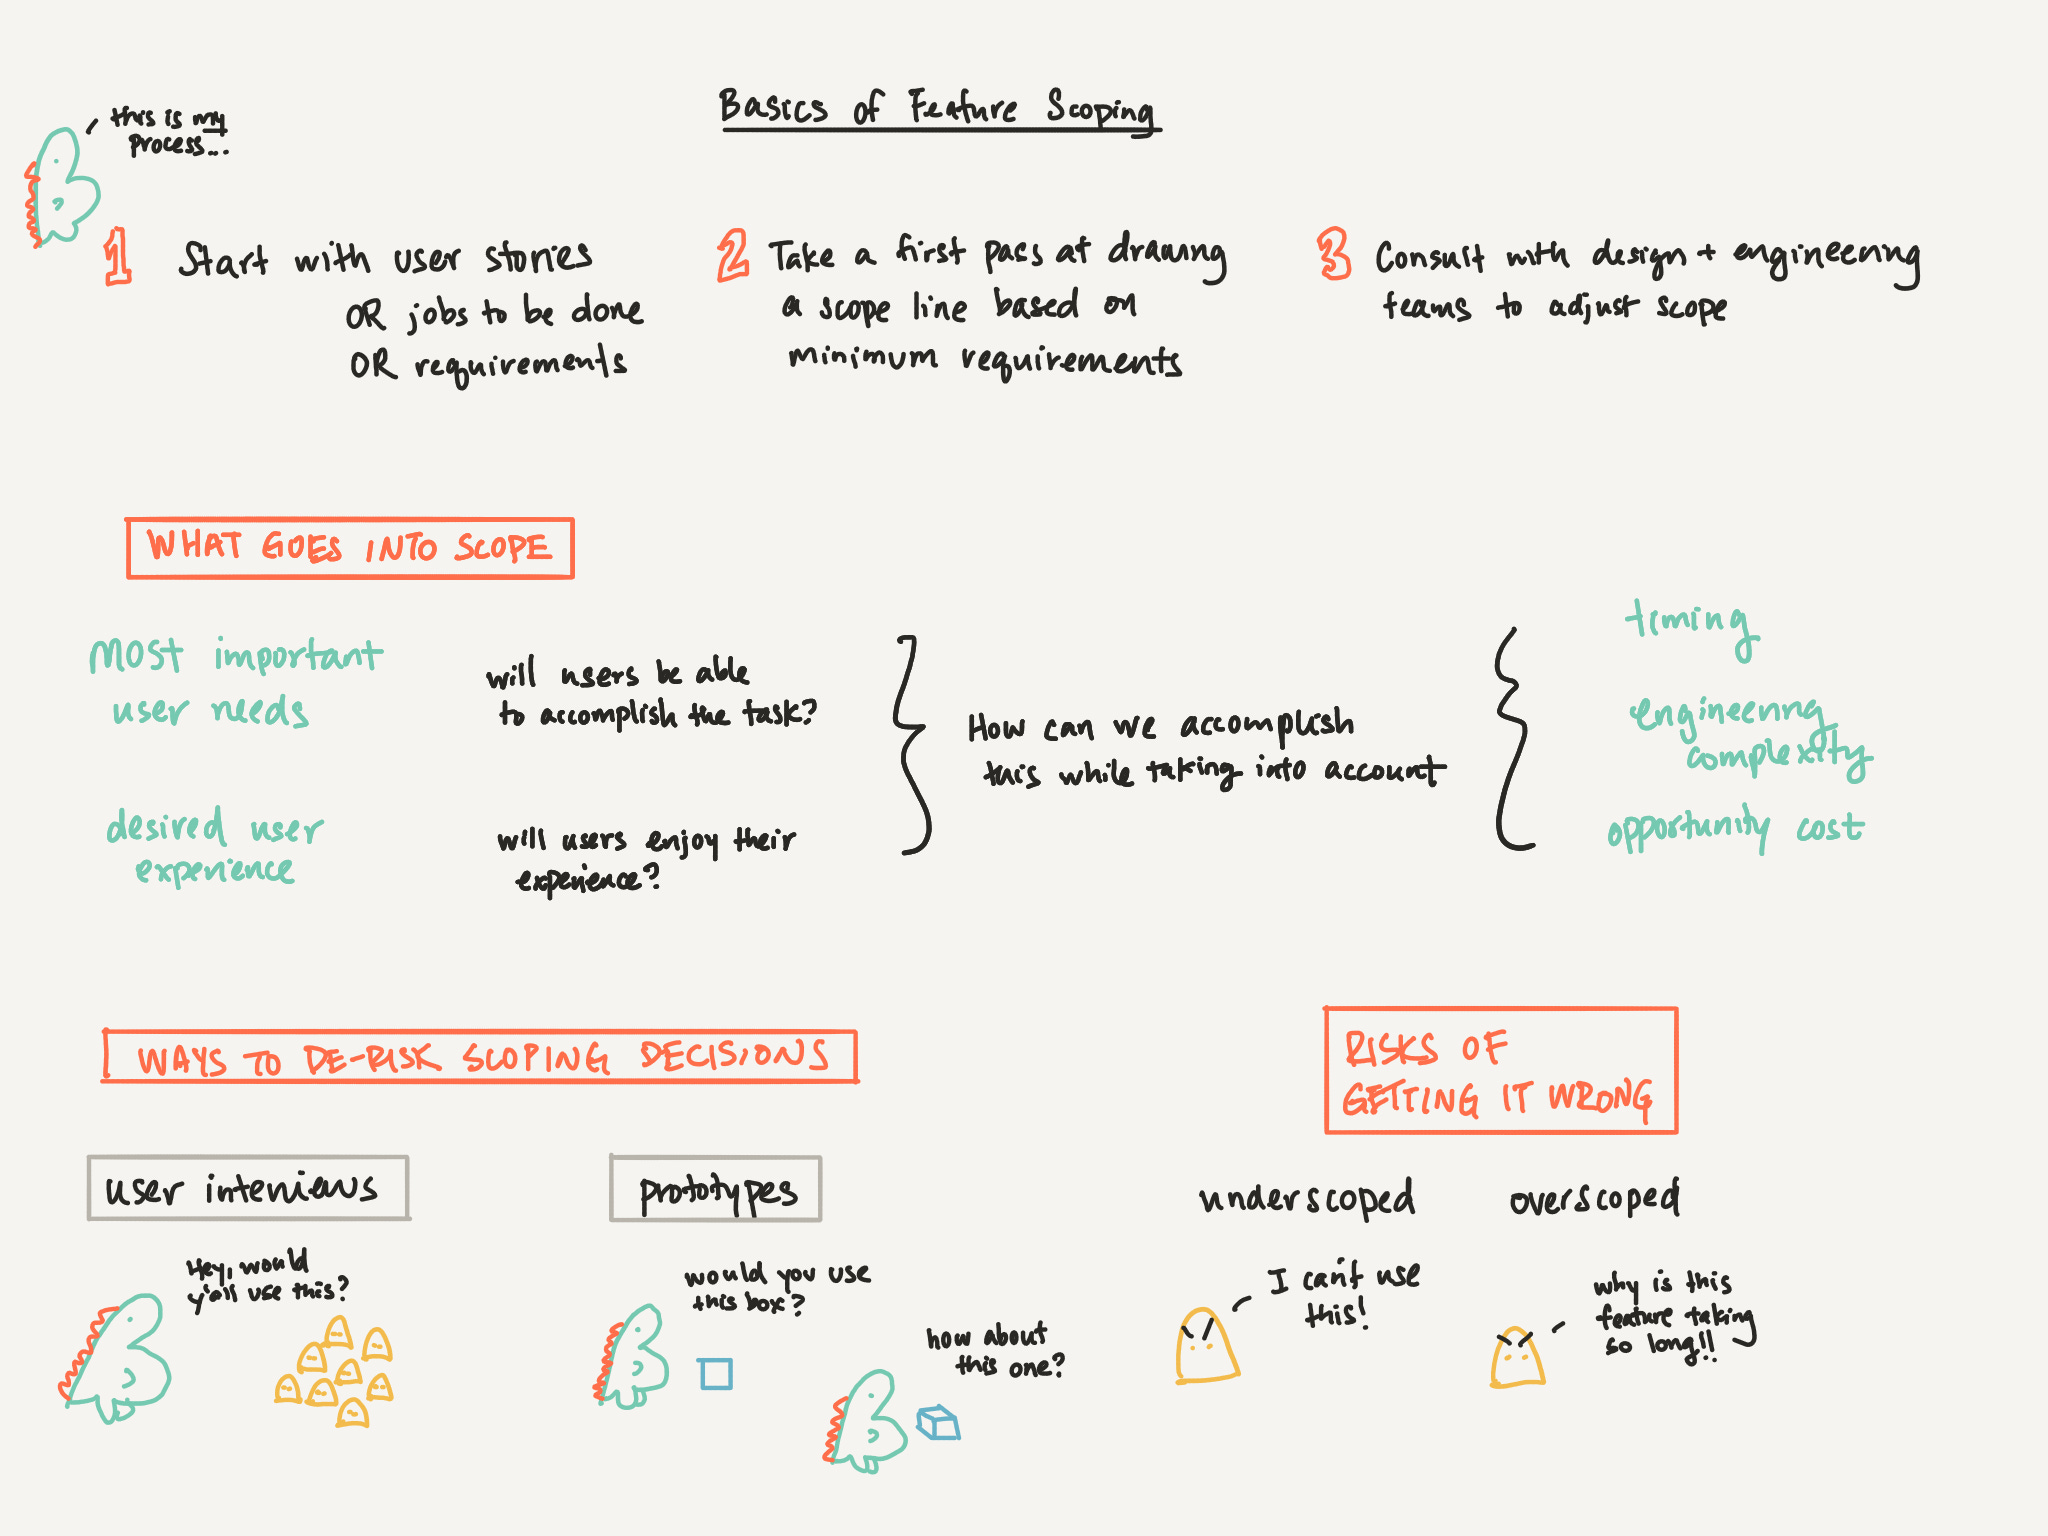 Basics of Feature Scoping
this is my
process...
1 Start with user stories
OR jobs to be done
OR requirements
2 Take a first pass at drawing
a scope line based on
minimum requirements
3 Consult with design + engineering
teams to adjust scope
WHAT GOES INTO SCOPE
MOST important
user needs
will users be able
to accomplish the task?
desired user
experience
will users enjoy their
experience?
How can we accomplish
this while taking into account
timing
engineering
complexity
opportunity cost
WAYS TO DE-RISK SCOPING DECISIONS
user interviews
Hey, would
y'all use this?
prototypes
would you use
this box?
how about
this one?
RISKS OF
GETTING IT WRONG
underscoped
I can't use
this!
overscoped
why is this
feature taking
so long!!